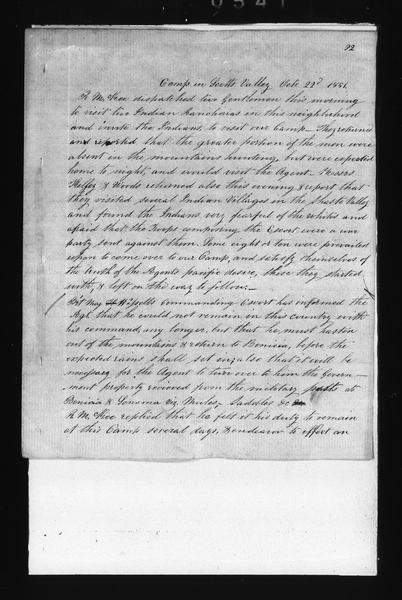 92
Camp in Scotts Valley Octr 22d 1851.
R. McKee despatched two Gentlemen this morning
to visit two Indian Rancharas in this neighborhood
and invite the Indians to visit our Camp. They returned
and reported that the greater portion of the men were
absent in the mountains hunting, but were expected
home to night, and would visit the Agent. Messrs
Kelsey & Woods returned also this evening & report that
they visited several Indian Villages in the Shasta Valley
and found the Indians very fearful of the whites and
afraid that the Troops composing the Escort were a war
party sent against them. Some eight or ten were prevailed
upon to come over to our Camp, and satisfy themselves of
the truth of the Agents pacific desire, these they started
with, & left on the way to follow.
Bt Maj Wessells commanding Escort has informed the
Agt that he could not remain in this country with
his command, any longer, but that he must hasten
out of the mountains & return to Benicia, before the
expected rains shall set in; also that it will be
necessary for the Agent to turn over to him the Govern
ment property received from the military posts at
Benicia & Sonoma viz, Mules, Saddles &c
R. McKee replied that he felt it his duty to remain
at this Camp several days, & endeavor to effect an